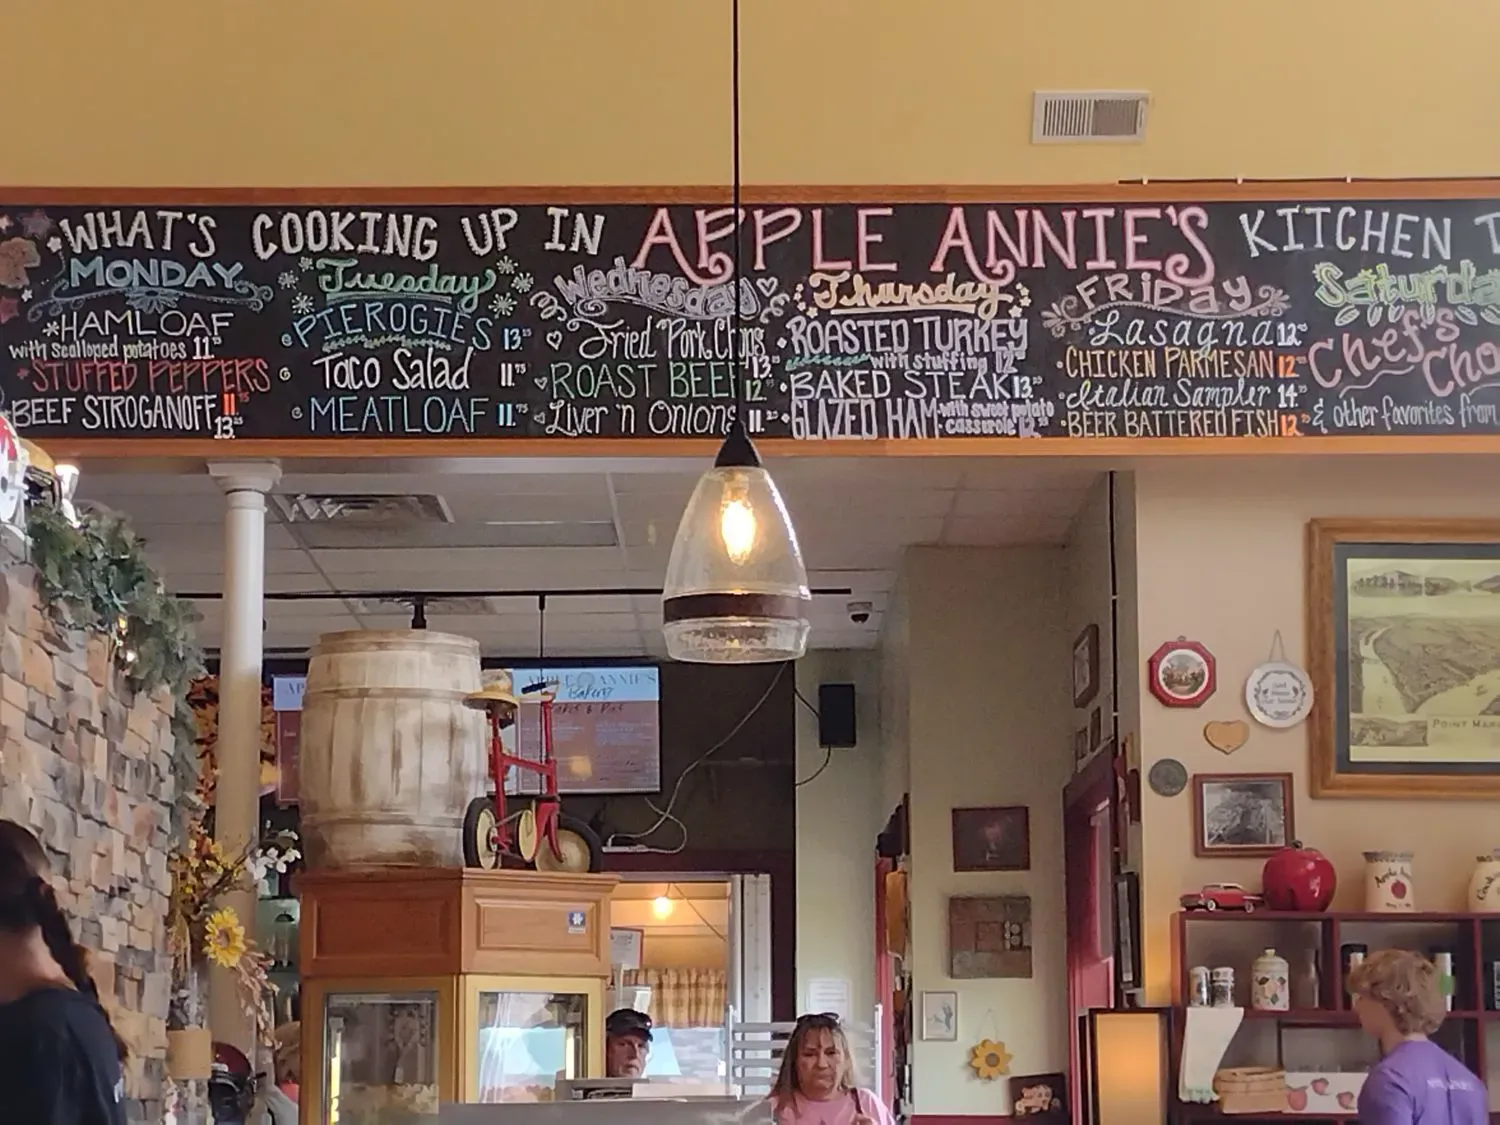 WHAT'S COOKING UP IN APPLE ANNIE'S KITCHEN
MONDAY
*HAMLOAF
with scalloped potatoes 11.
*STUFFED PEPPERS
11.
BEEF STROGANOFF
13.
Tuesday
PIEROGIES 13.
Taco Salad 11.75
MEATLOAF 11.75
Wednesday
Fried Pork Chops
13.
ROAST BEEF 12.
Liver 'n Onions 11.
Thursday
ROASTED TURKEY
with stuffing 12
BAKED STEAK 13.
GLAZED HAM with sweet potato
casserole 12
FRIDAY
Lasagna 12
CHICKEN PARMESAN 12
Italian Sampler 14.
BEER BATTERED FISH 12
Saturda
Chef's
Cho
& other favorites from
APPLE ANNIE'S
Bakery
POINT MAR